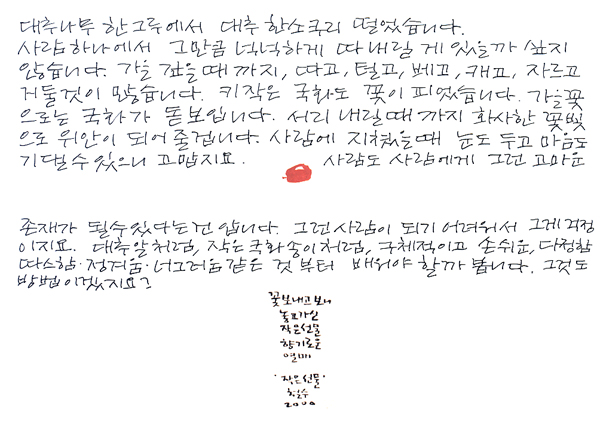 대추나무 한그루에서 대추 한소쿠리 떨었습니다.
사람하나에서 그만큼 넉넉하게 따내릴 게 있을까 싶지
않습니다. 가을 깊을때 까지, 따고, 털고, 베고, 캐고, 자르고
거둘것이 많습니다. 키작은 국화도 꽃이 피었습니다. 가을꽃
으로는 국화가 돋보입니다. 서리 내릴때 까지 화사한 꽃빛
으로 위안이 되어 줄겁니다. 사람에 지쳤을때 눈도 두고 마음도
기댈수 있으니 고맙지요. 사람도 사람에게 그런 고마운
존재가 될수있다는건 압니다. 그런사람이 되기 어려워서 그게 걱정
이지요. 대추알처럼, 작은 국화송이처럼, 구체적이고 손쉬운, 다정함
따스함·정겨움·너그러움같은 것부터 배워야 할까 봅니다. 그것도
방법이겠지요?
꽃보내고보니
놓고가신
작은선물
향기로운
열매
'작은선물'
철수
2000